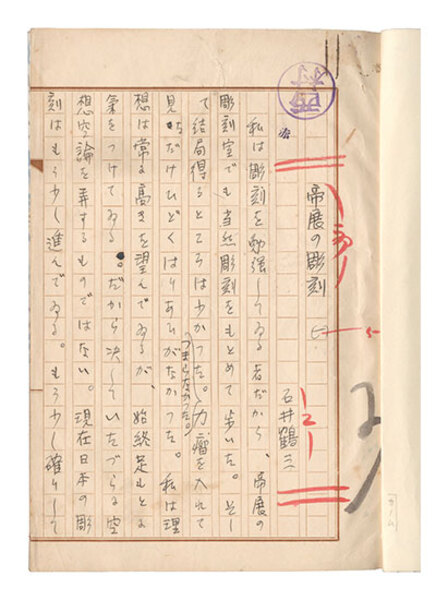 帝展の彫刻
石井鶴三
私は彫刻を勉強してゐる者だから、帝展の
彫刻室でも当然彫刻をもとめて歩いた。そし
て結局得るところは少かつた。力瘤を入れて
見ただけひどくはりあひがなかつた。私は理
つまらなかつた。
想は常に高きを望んでゐるが、始終足もとに
気をつけてゐる。だから決していたづらに空
想空論を弄するものではない。現在日本の彫
刻はもう少し進んでゐる。もう少し確りして